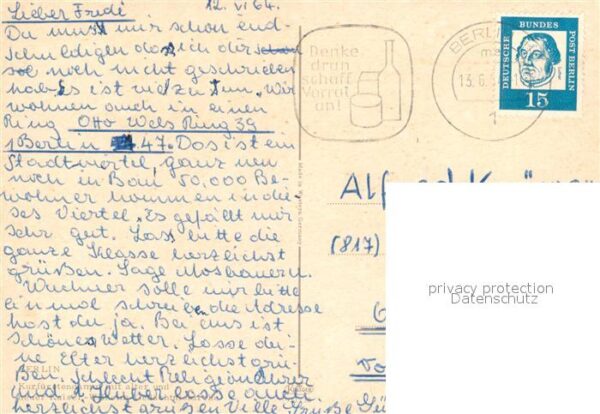 Lieber Fredi 12. VI 64.
Du musst mir schon end-
schuldigen dass ich dir schon
so noch nicht geschrieben
habe. Es ist viel zu tun. Wir
wohnen auch in einen
Ring Otto Wels Ring 39
1 Berlin 47. Das ist ein
Stadtviertel, ganz neu
noch in Bau 50,000 Be-
wohner kommen in die-
ses Viertel. Es gefällt mir
sehr gut. Lass bitte die
ganze Klasse herzlichst
grüßen. Sage Mosbauern.
Wuchner solle mir bitte
einmal schreiben die Adresse
hast du ja. Bei uns ist
schönes Wetter. Lasse dei-
ne Elter herzlichst grü-
ßen.
BERLIN
Kurfürstendamm mit alter und
und Huber lasse auch
herzlichst grüßen Viele Grüße
Denke
dran
schaff
Vorrat
an!
BERLIN
13. 6.
1
DEUTSCHE BUNDES POST BERLIN
15
Made in Western Germany
Alfred
(817)
privacy protection
Datenschutz